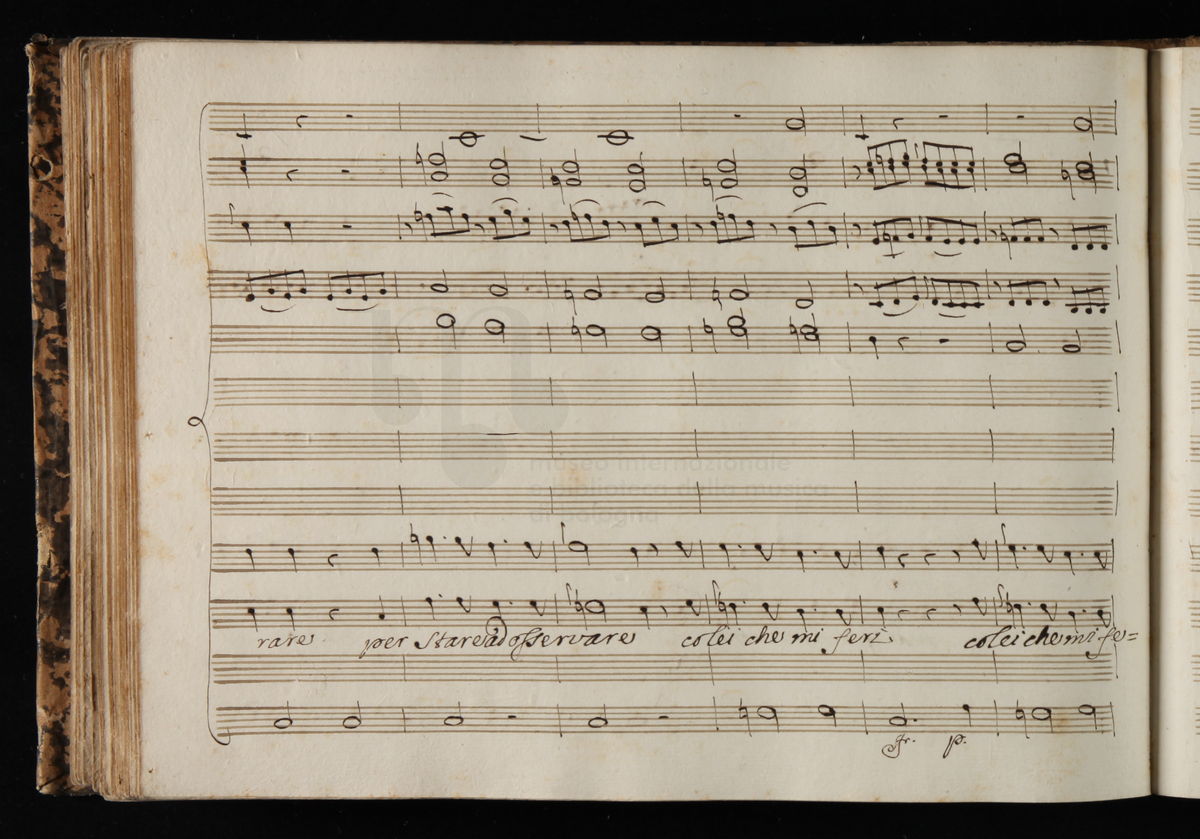 museo internazionale
e biblioteca della musica
di bologna
rare per Stare ad osservare colei che mi ferì colei che mi fe=
fr. p.